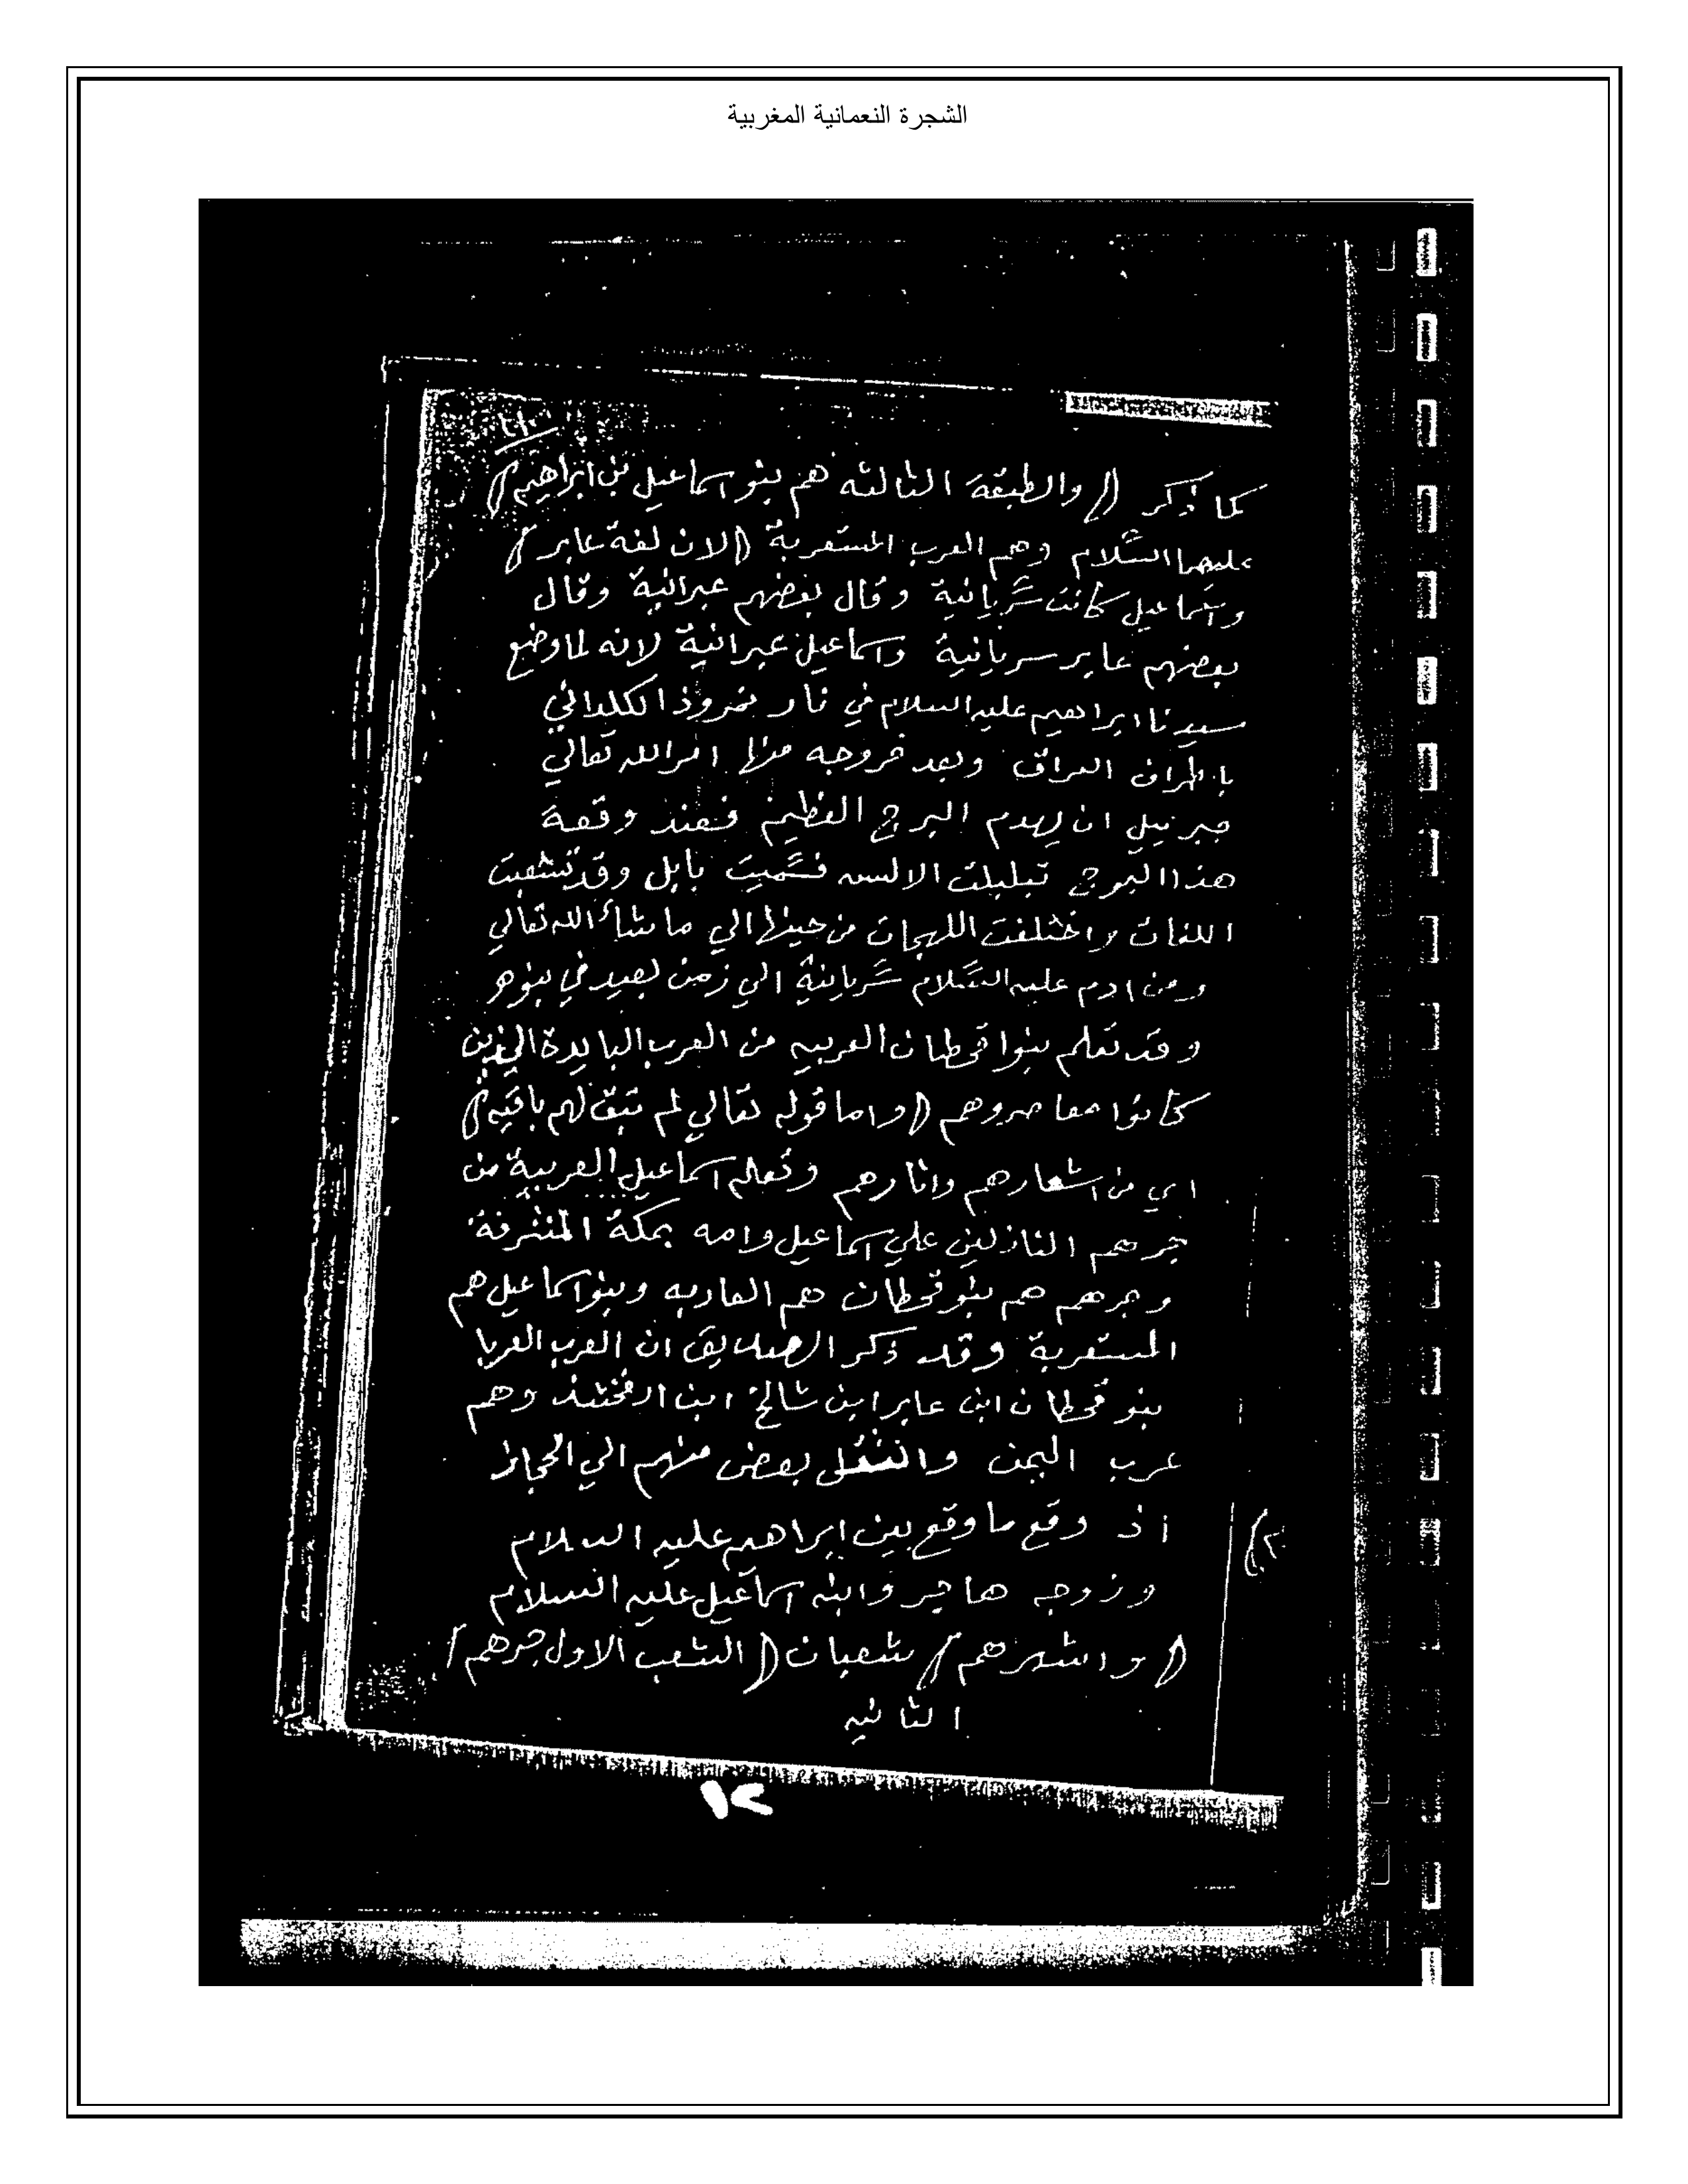 الشجرة النعمانية المغربية
كما ذكر (والطبقة الثالثه هم بنو اسماعيل بن ابراهيم)
عليهما السلام وهم العرب المستعربة (لان لغة عابر)
واسماعيل كانت سريانية وقال بعضهم عبرانية وقال
بعضهم عابر سريانية واسماعيل عبرانية لانه لما وضع
سيدنا ابراهيم عليه السلام في نار نمروذ الكلداني
باطراف العراق وبعد خروجه منها امر الله تعالي
جبرئيل ان يهدم البرج العظيم فعند وقعة
هذا البرج تبلبلت الالسن فسميت بابل وقد تشعبت
اللغات واختلفت اللهجات من حينها الي ما شاء الله تعالي
ومن ادم عليه السلام سريانية الي زمن بعيد في بنوه
وقد تعلم بنوا قحطان العربيه من العرب البايدة الذين
كانوا معاصروهم (واما قوله تعالي لم تبق لهم باقيه)
اي من اشعارهم واثارهم وتعلم اسماعيل العربية من
جرهم النازلين علي اسماعيل وامه بمكة المشرفة
وجرهم هم بنو قحطان هم العاربه وبنو اسماعيل هم
المستعربة وقد ذكر ان العرب العربا
بنو قحطان ابن عابر ابن شالخ ابن ارفخشد وهم
عرب اليمن وانتقل بعض منهم الي الحجاز
اذ وقع ما وقع بين ابراهيم عليه السلام
وزوجه هاجر وابنه اسماعيل عليه السلام
(واشهرهم) شعبان (الشعب الاول جرهم)
الثانيه
(٢)
١٢